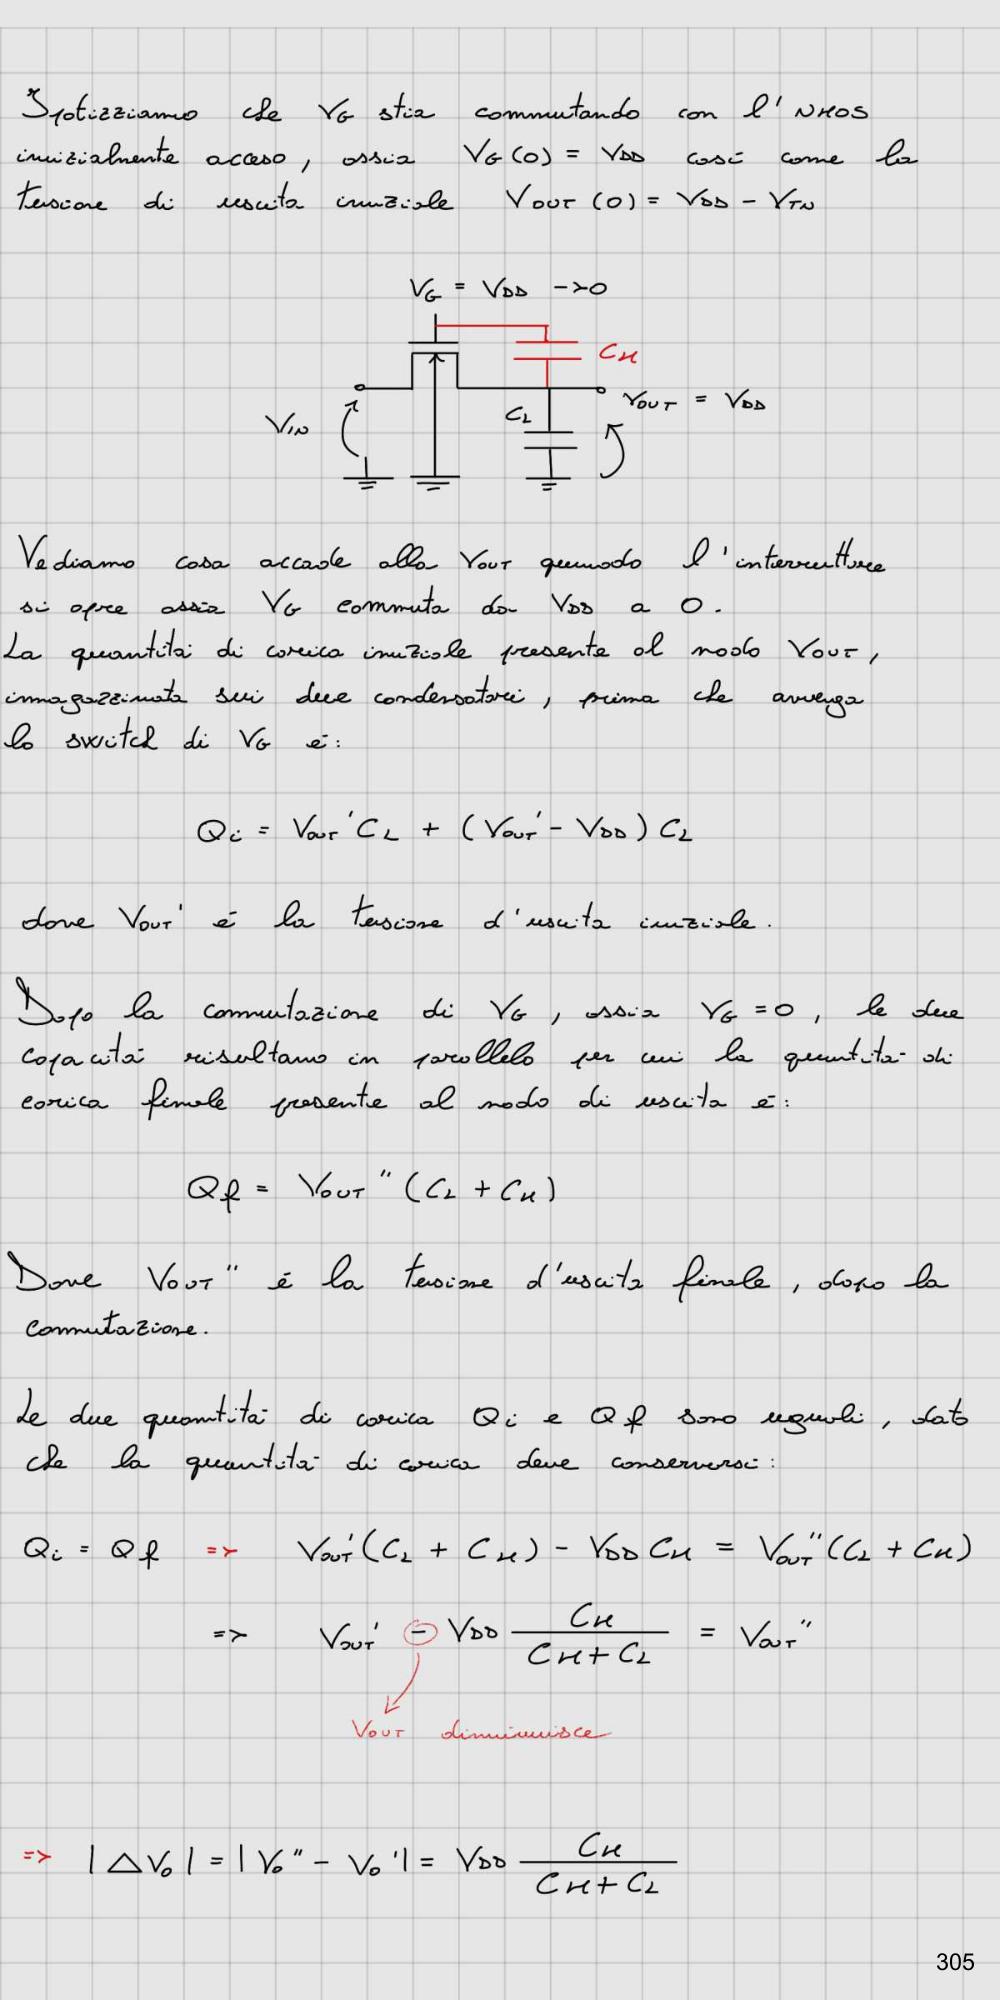 Ipotizziamo che VG stia commutando con l'NMOS
inizialmente acceso, ossia VG(0) = VDD così come la
tensione di uscita iniziale VOUT(0) = VDD - VTN
VG = VDD -> 0
CM
VOUT = VDD
CL
VIN
Vediamo cosa accade alla VOUT quando l'interruttore
si apre ossia VG commuta da VDD a 0.
La quantità di carica iniziale presente al nodo VOUT,
immagazzinata sui due condensatori, prima che avvenga
lo switch di VG è:
Qi = VOUT' CL + (VOUT' - VDD) CL
dove VOUT' è la tensione d'uscita iniziale.
Dopo la commutazione di VG, ossia VG = 0, le due
capacità risultano in parallelo per cui la quantità di
carica finale presente al nodo di uscita è:
Qf = VOUT'' (CL + CM)
Dove VOUT'' è la tensione d'uscita finale, dopo la
commutazione.
Le due quantità di carica Qi e Qf sono uguali, dato
che la quantità di carica deve conservarsi:
Qi = Qf => VOUT' (CL + CM) - VDD CM = VOUT'' (CL + CM)
=> VOUT' - VDD CM / (CM + CL) = VOUT''
VOUT diminuisce
=> |ΔVo| = |Vo'' - Vo'| = VDD CM / (CM + CL)
305